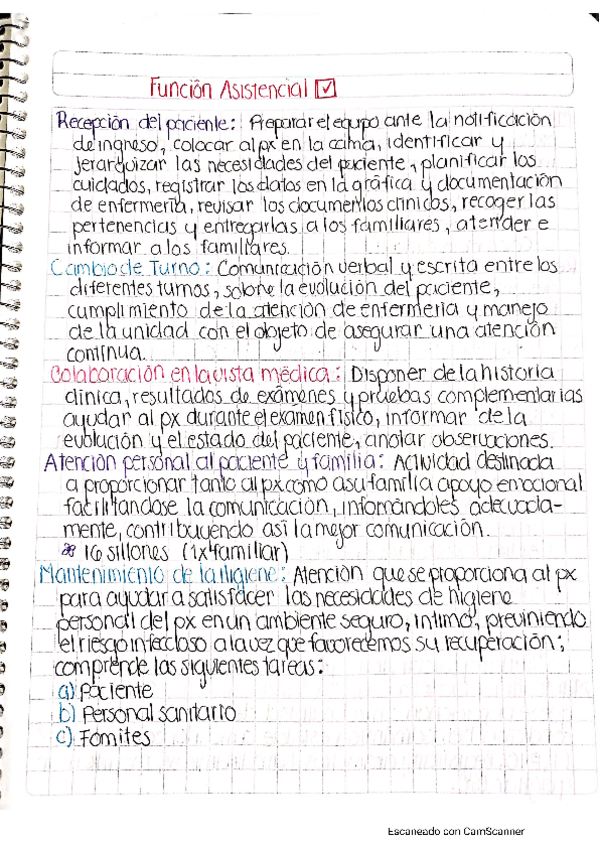 Función Asistencial ☑
Recepción del paciente: Preparar el equipo ante la notificación
de ingreso, colocar al px en la cama, identificar y
jerarquizar las necesidades del paciente, planificar los
cuidados, registrar los datos en la gráfica y documentación
de enfermería, revisar los documentos clínicos, recoger las
pertenencias y entregarlas a los familiares, atender e
informar a los familiares.
Cambio de Turno: Comunicación verbal y escrita entre los
diferentes turnos, sobre la evolución del paciente,
cumplimiento de la atención de enfermería y manejo
de la unidad con el objeto de asegurar una atención
contínua.
Colaboración en la vista médica: Disponer de la historia
clínica, resultados de exámenes y pruebas complementarias
ayudar al px durante el examen físico, informar de la
evolución y el estado del paciente, anotar observaciones.
Atención personal al paciente y familia: Actividad destinada
a proporcionar tanto al px como a su familia apoyo emocional
facilitandose la comunicación, informándoles adecuada-
mente, contribuyendo así la mejor comunicación.
* 16 sillones (1x familiar)
Mantenimiento de la Higiene: Atención que se proporciona al px
para ayudar a satisfacer las necesidades de higiene
personal del px en un ambiente seguro, íntimo, previniendo
el riesgo infeccioso a la vez que favorecemos su recuperación;
comprende las siguientes tareas:
a) Paciente
b) Personal sanitario
c) Fómites
Escaneado con CamScanner